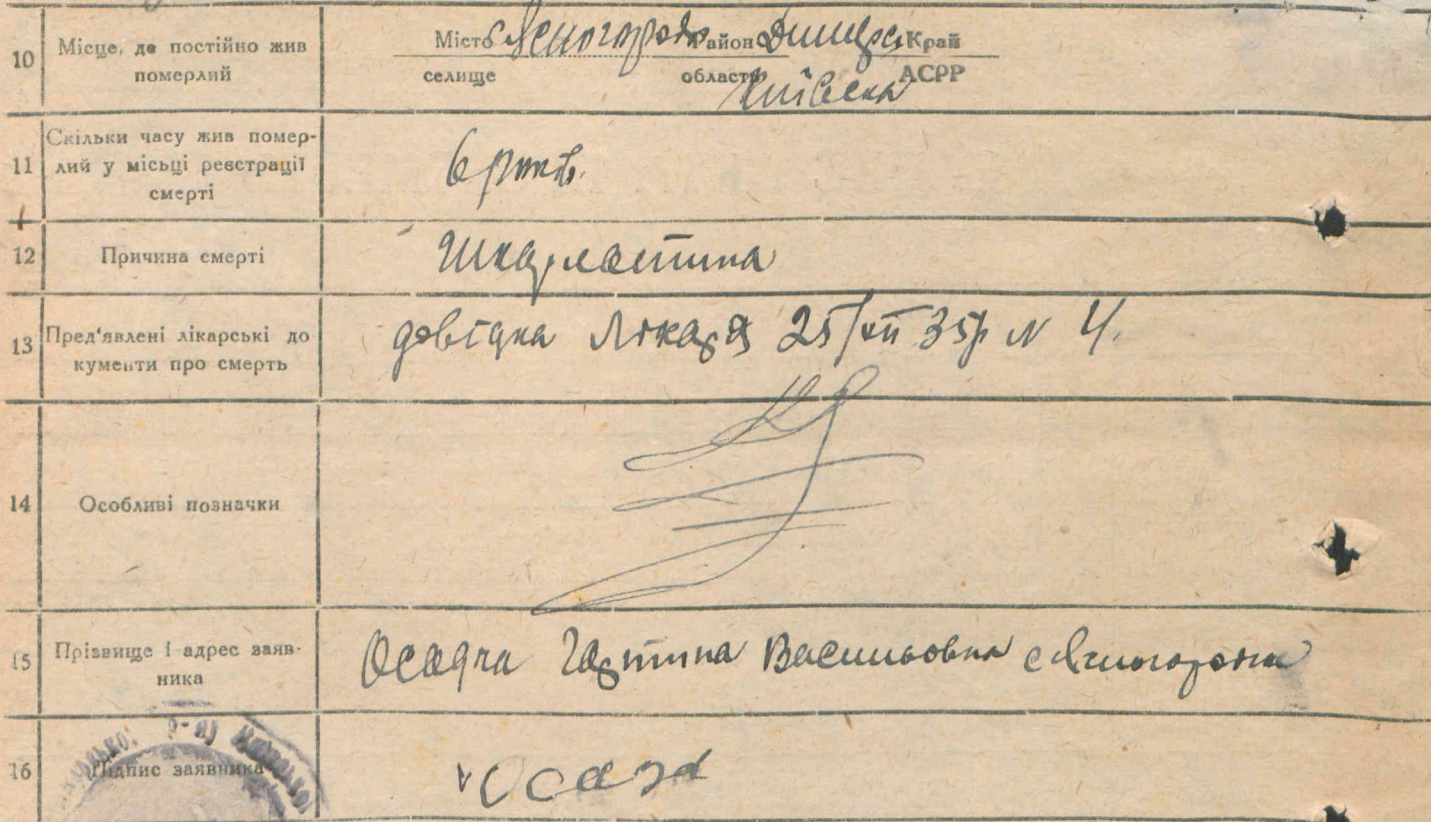 10 Місце, де постійно жив Місто с. Ясногородка Район Димерс. Край
померлий селище область АСРР
Київська
11 Скільки часу жив помер-
лий у місці реєстрації
смерті
6 років.
12 Причина смерті Шкарлатина
13 Пред'явлені лікарські до
кументи про смерть
довідка лікаря 25/XII 35р N 4.
14 Особливі позначки
15 Прізвище і адрес заяв-
ника
Осадча Василь­овна с Ясногородка
16 Підпис заявника Осадч
р-ну